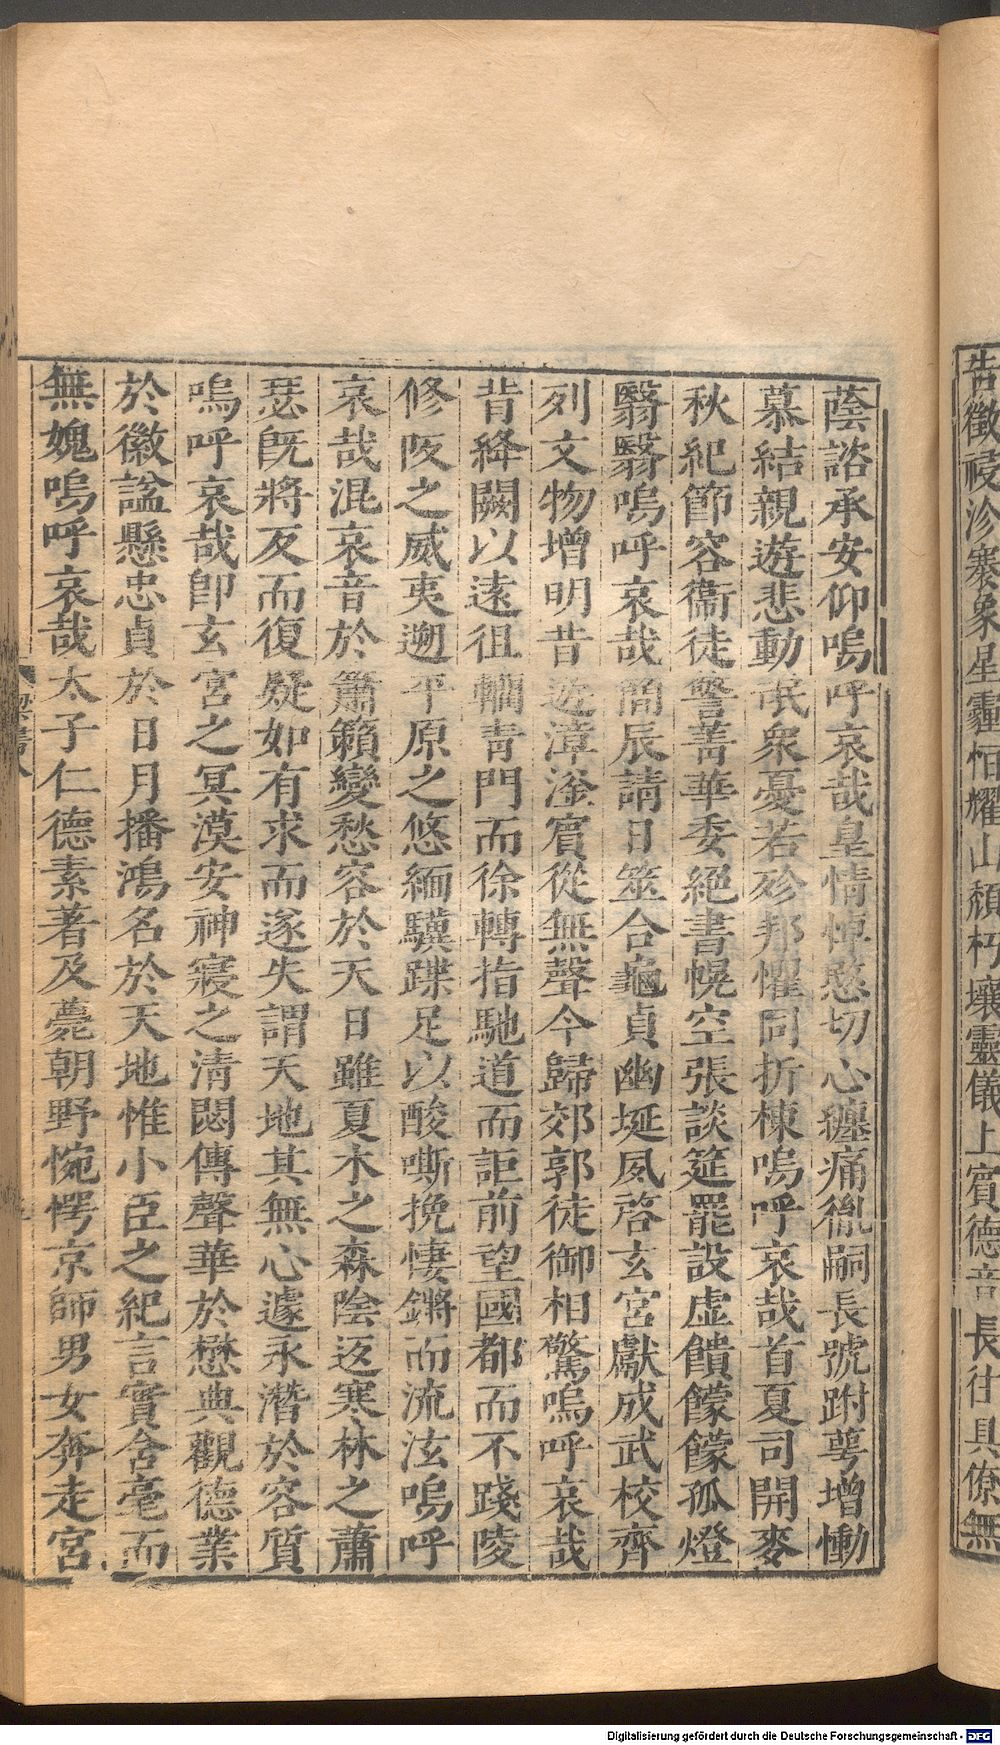 告徵祲沴褰象星霾恒耀山頹朽壤靈儀上賓德音長往具僚無
蔭諮承安仰嗚呼哀哉皇情悼愍切心纏痛胤嗣長號跗萼增慟
慕結親遊悲動氓衆憂若殄邦懼同折棟嗚呼哀哉首夏司開麥
秋紀節容衞徒警菁華委絕書幌空張談筵罷設虛饋饛饛孤燈
翳翳嗚呼哀哉簡辰請日筮合龜貞幽埏夙啓玄宮獻成武校齊
列文物增明昔遊漳滏賓從無聲今歸郊郭徒御相驚嗚呼哀哉
背絳闕以遠徂轥青門而徐轉指馳道而詎前望國都而不踐陵
修阪之威夷遡平原之悠緬驥蹀足以酸嘶挽悽鏘而流泫嗚呼
哀哉混哀音於簫籟變愁容於天日雖夏木之森陰返寒林之蕭
瑟旣將反而復疑如有求而遂失謂天地其無心遽永潛於容質
嗚呼哀哉卽玄宮之冥漠安神寢之清閟傳聲華於懋典觀德業
於徽諡懸忠貞於日月播鴻名於天地惟小臣之紀言實含毫而
無媿嗚呼哀哉太子仁德素著及薨朝野惋愕京師男女奔走宮
梁書八
Digitalisierung gefördert durch die Deutsche Forschungsgemeinschaft - DFG